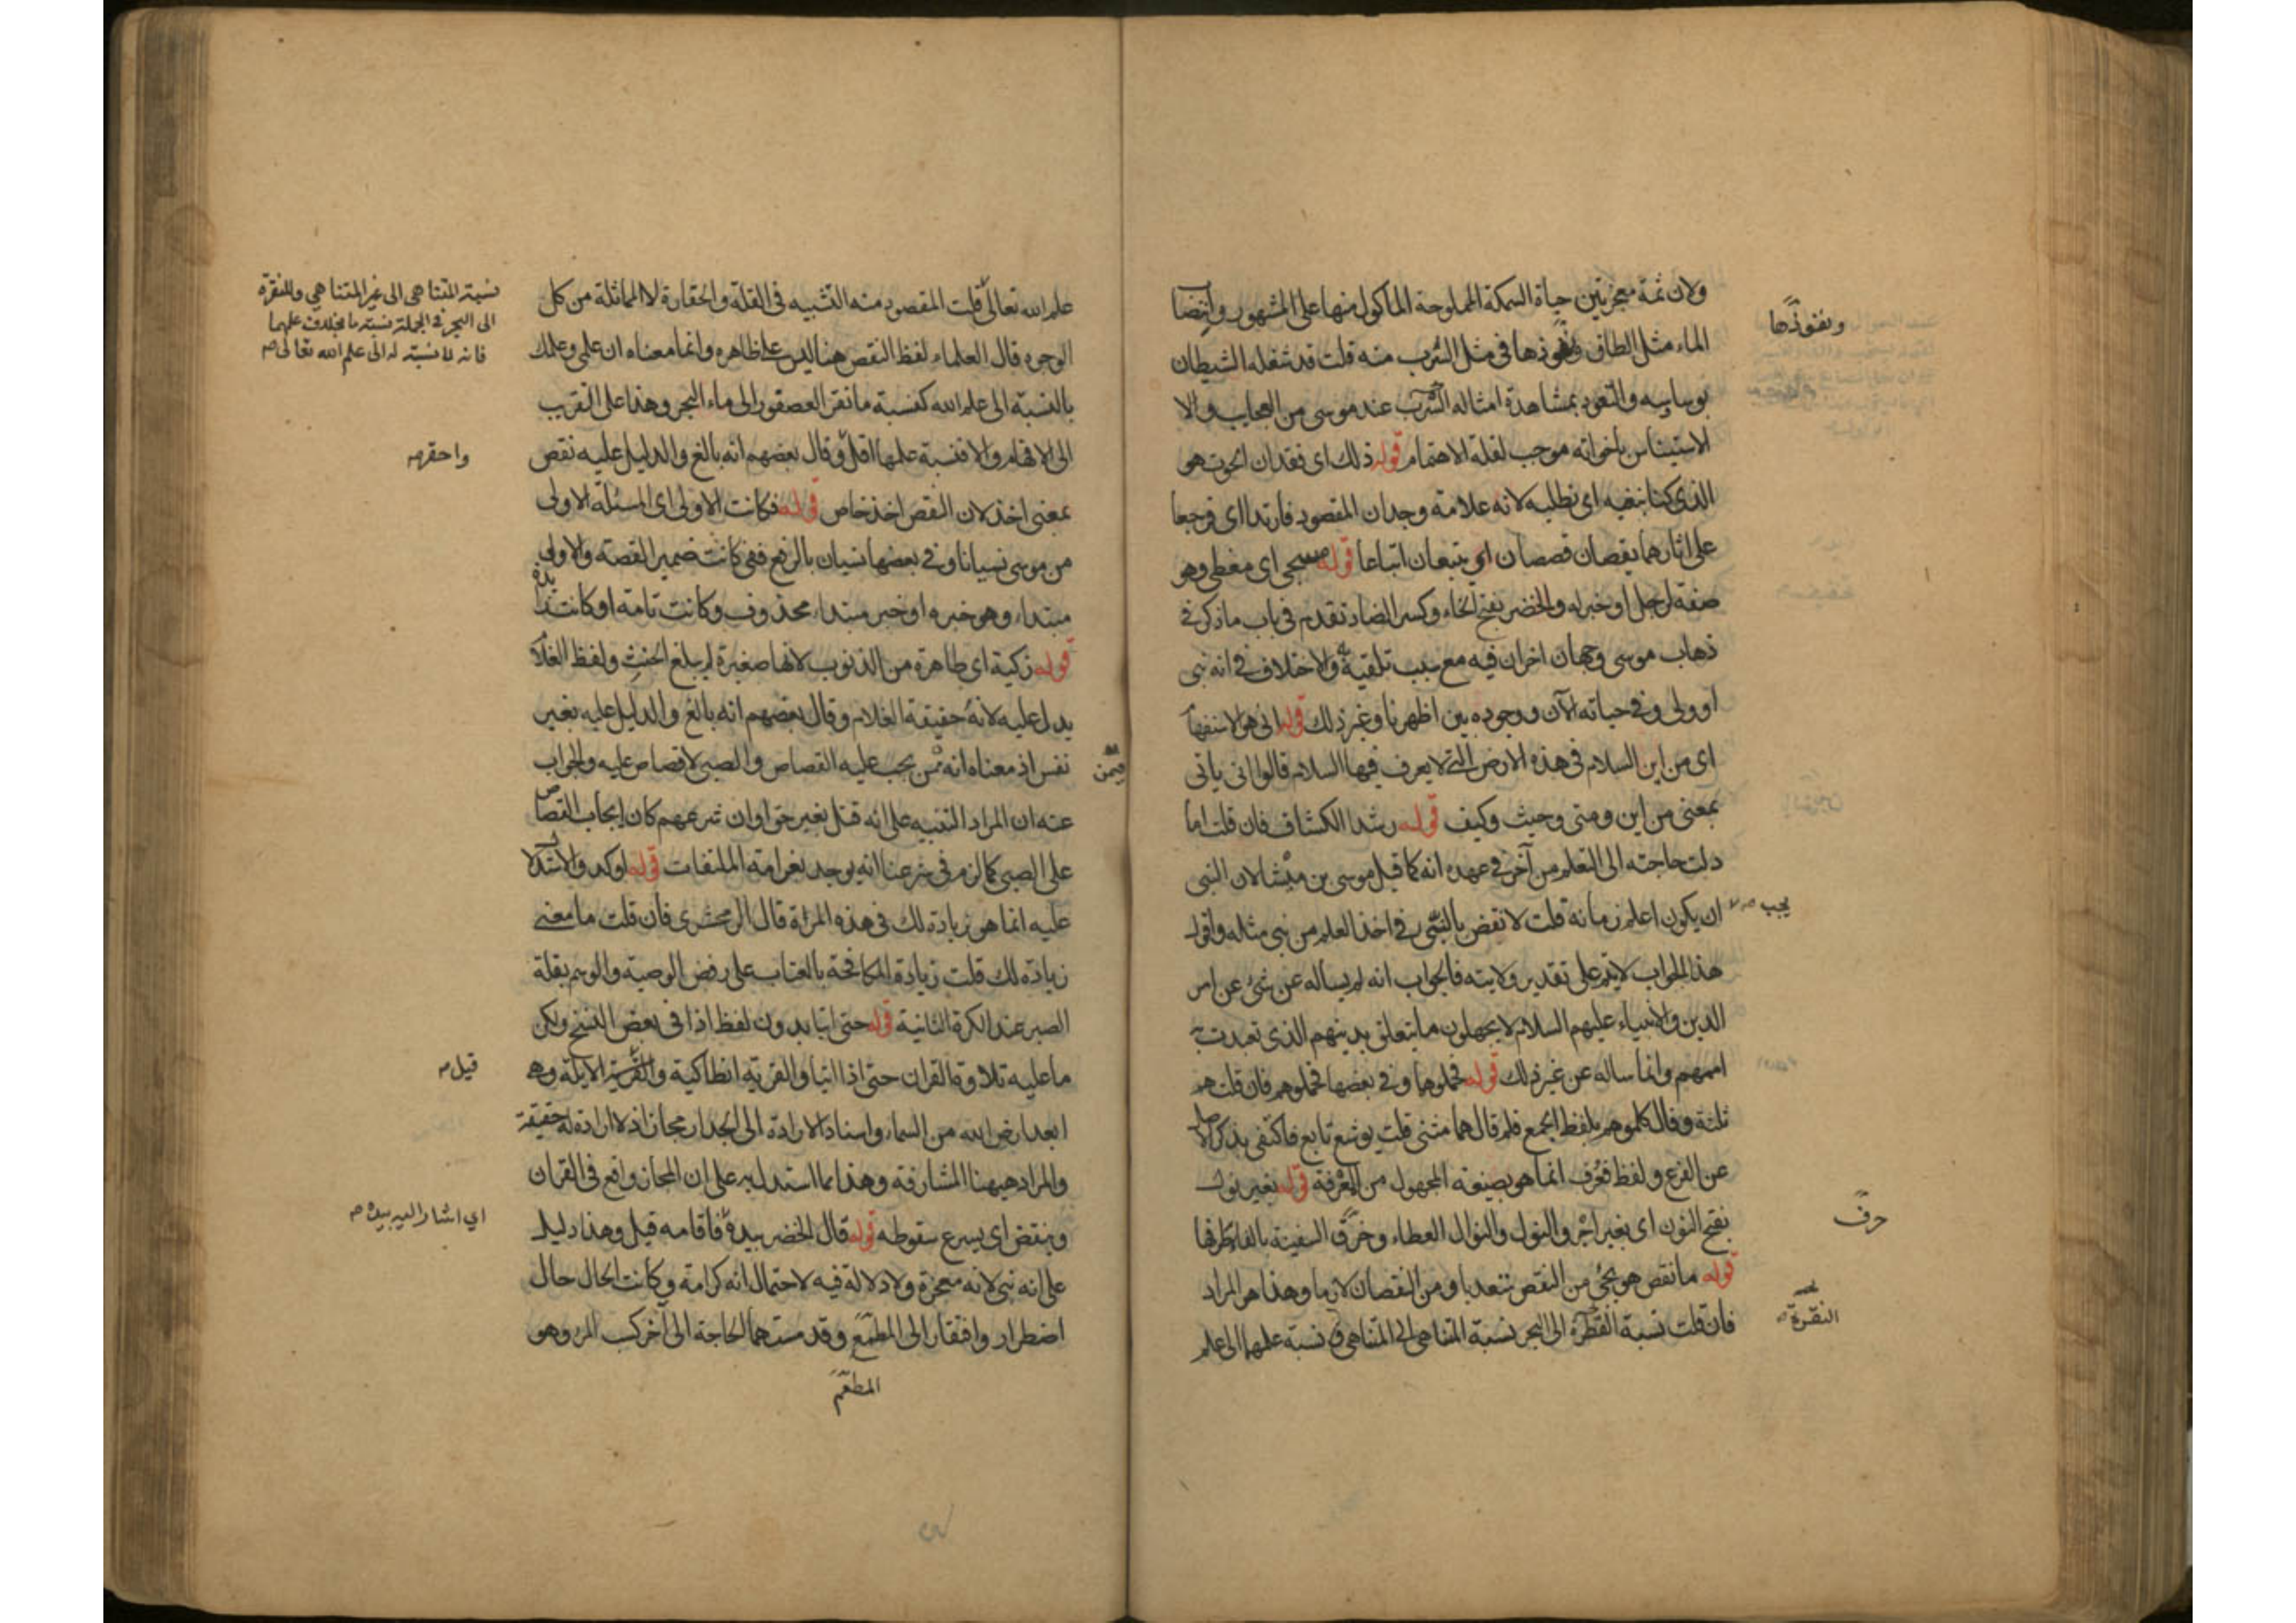 ولان ثمة معجزتين حياة السمكة المملوحة الماكول منها على المشهور وانتصاب
الماء مثل الطاق ونفوذها في مثل السرب منه قلت قد شغله الشيطان
بوساوسه والتعود بمشاهدة امثاله عند موسى من العجايب والا
الاستيناس باخواته موجب لقلة الاهتمام قوله ذلك اى فقدان الحوت هو
الذى كنا نبغيه اى نطلبه لانه علامة وجدان المقصود فارتدا اى فرجعا
على اثارهما يقصان قصصا اى يتبعان اتباعا قوله مسجى اى مغطى وهو
صفة لرجل او خبر له والخضر بفتح الخاء وكسر الضاد تقدم فى باب ما ذكر فى
ذهاب موسى وجهان اخران فيه مع سبب تلقيبه والاختلاف فى انه نبى
او ولى وفى حياته الآن ووجوده بين اظهرنا وغير ذلك قوله انى هو الاستفهام
اى من اين السلام فى هذه الارض التى لا يعرف فيها السلام قالوا انى ياتى
بمعنى من اين ومتى وحيث وكيف قوله رشدا الكشاف فان قلت اما
دلت حاجته الى التعلم من آخر فى عهده انه كما قيل موسى بن ميشا لان النبى
ان يكون اعلم زمانه قلت لا نقص بالنبى فى اخذ العلم من نبى مثله واقول
هذا الجواب لا يتم على تقدير ولايته فالجواب انه لم يساله عن شئ عن امر
الدين والانبياء عليهم السلام لا يجهلون ما يتعلق بدينهم الذى تعبدت به
اممهم وانما ساله عن غير ذلك قوله فحملوها وفى بعضها فحملوهم فان قلت هم
ثلثة وقال كلموهم بلفظ الجمع فلم قال هما مثنى قلت يوشع تابع فاكتفى بذكر الاصل
عن الفرع ولفظ فعرف انما هو بصيغة المجهول من المعرفة قوله بغير نول
بفتح النون اى بغير اجر والنول والنوال العطاء وخرق السفينة بالفا طرفها
قوله ما نقص هو يجئ من النقص متعديا ومن النقصان لازما وهذا هو المراد
فان قلت نسبة القطرة الى البحر نسبة المتناهى الى المتناهى ونسبة علمهما الى علم
ونفوذها
يجب
حرف
النقرة
علم الله تعالى قلت المقصود منه التشبيه فى القلة والحقارة لا المماثلة من كل
الوجوه قال العلماء لفظ النقص هنا ليس على ظاهره وانما معناه ان علمى وعلمك
بالنسبة الى علم الله كنسبة ما نقر العصفور الى ماء البحر وهذا على التقريب
الى الافهام والا فنسبة علمهما اقل وقال بعضهم انه بالغ والدليل عليه نقص
بمعنى اخذ لان النقص اخذ خاص قوله فكانت الاولى اى المسئلة الاولى
من موسى نسيانا وفى بعضها نسيان بالرفع ففى كانت ضمير القصة والاولى
مبتداء وهو خبره او خبر مبتداء محذوف وكانت تامة او كانت زائدة
قوله زكية اى طاهرة من الذنوب لانها صغيرة لم يبلغ الحنث ولفظ الغلام
يدل عليه لانه حقيقة الغلام وقال بعضهم انه بالغ والدليل عليه بغير
نفس اذ معناه انه ممن يجب عليه القصاص والصبى لا قصاص عليه والجواب
عنه ان المراد التنبيه على انه قتل بغير حق او ان شرعهم كان ايجاب القصاص
على الصبى كما لزم فى شرعنا انه يوجد بغرامة المتلفات قوله اوكد والاستدلال
عليه انما هو بزيادة لك فى هذه المراة قال الزمخشرى فان قلت ما معنى
زيادة لك قلت زيادة المكافحة بالعتاب على رفض الوصية والوسم بقلة
الصبر عند الكرة الثانية قوله حتى اتيا بدون لفظ اذا فى بعض النسخ ولكن
ما عليه تلاوة القران حتى اذا اتيا والقرية انطاكية والقرية الايلة وهى
ابعد ارض الله من السماء واسناد الارادة الى الجدار مجاز اذ لا ارادة له حقيقة
والمراد ههنا المشارفة وهذا مما استدل به على ان المجاز واقع فى القران
وينقض اى يسرع سقوطه قوله قال الخضر بيده فاقامه قيل وهذا دليل
على انه نبى لانه معجزة ولا دلالة فيه لاحتمال انه كرامة وكانت الحال حال
اضطرار وافتقار الى المطعم وقد مستهما الحاجة الى آخر كسب المرء وهو
المطعم
نسبة المتناهى الى غير المتناهى وللنقرة
الى البحر فى الجملة نسبة ما بخلاف علمهما
فانه لا نسبة له الى علم الله تعالى صح
واحقر
فيمن
قيل
اى اشار اليه بيده